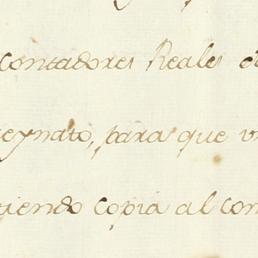 Contadores Reales
eynato, para que
iendo copia al con